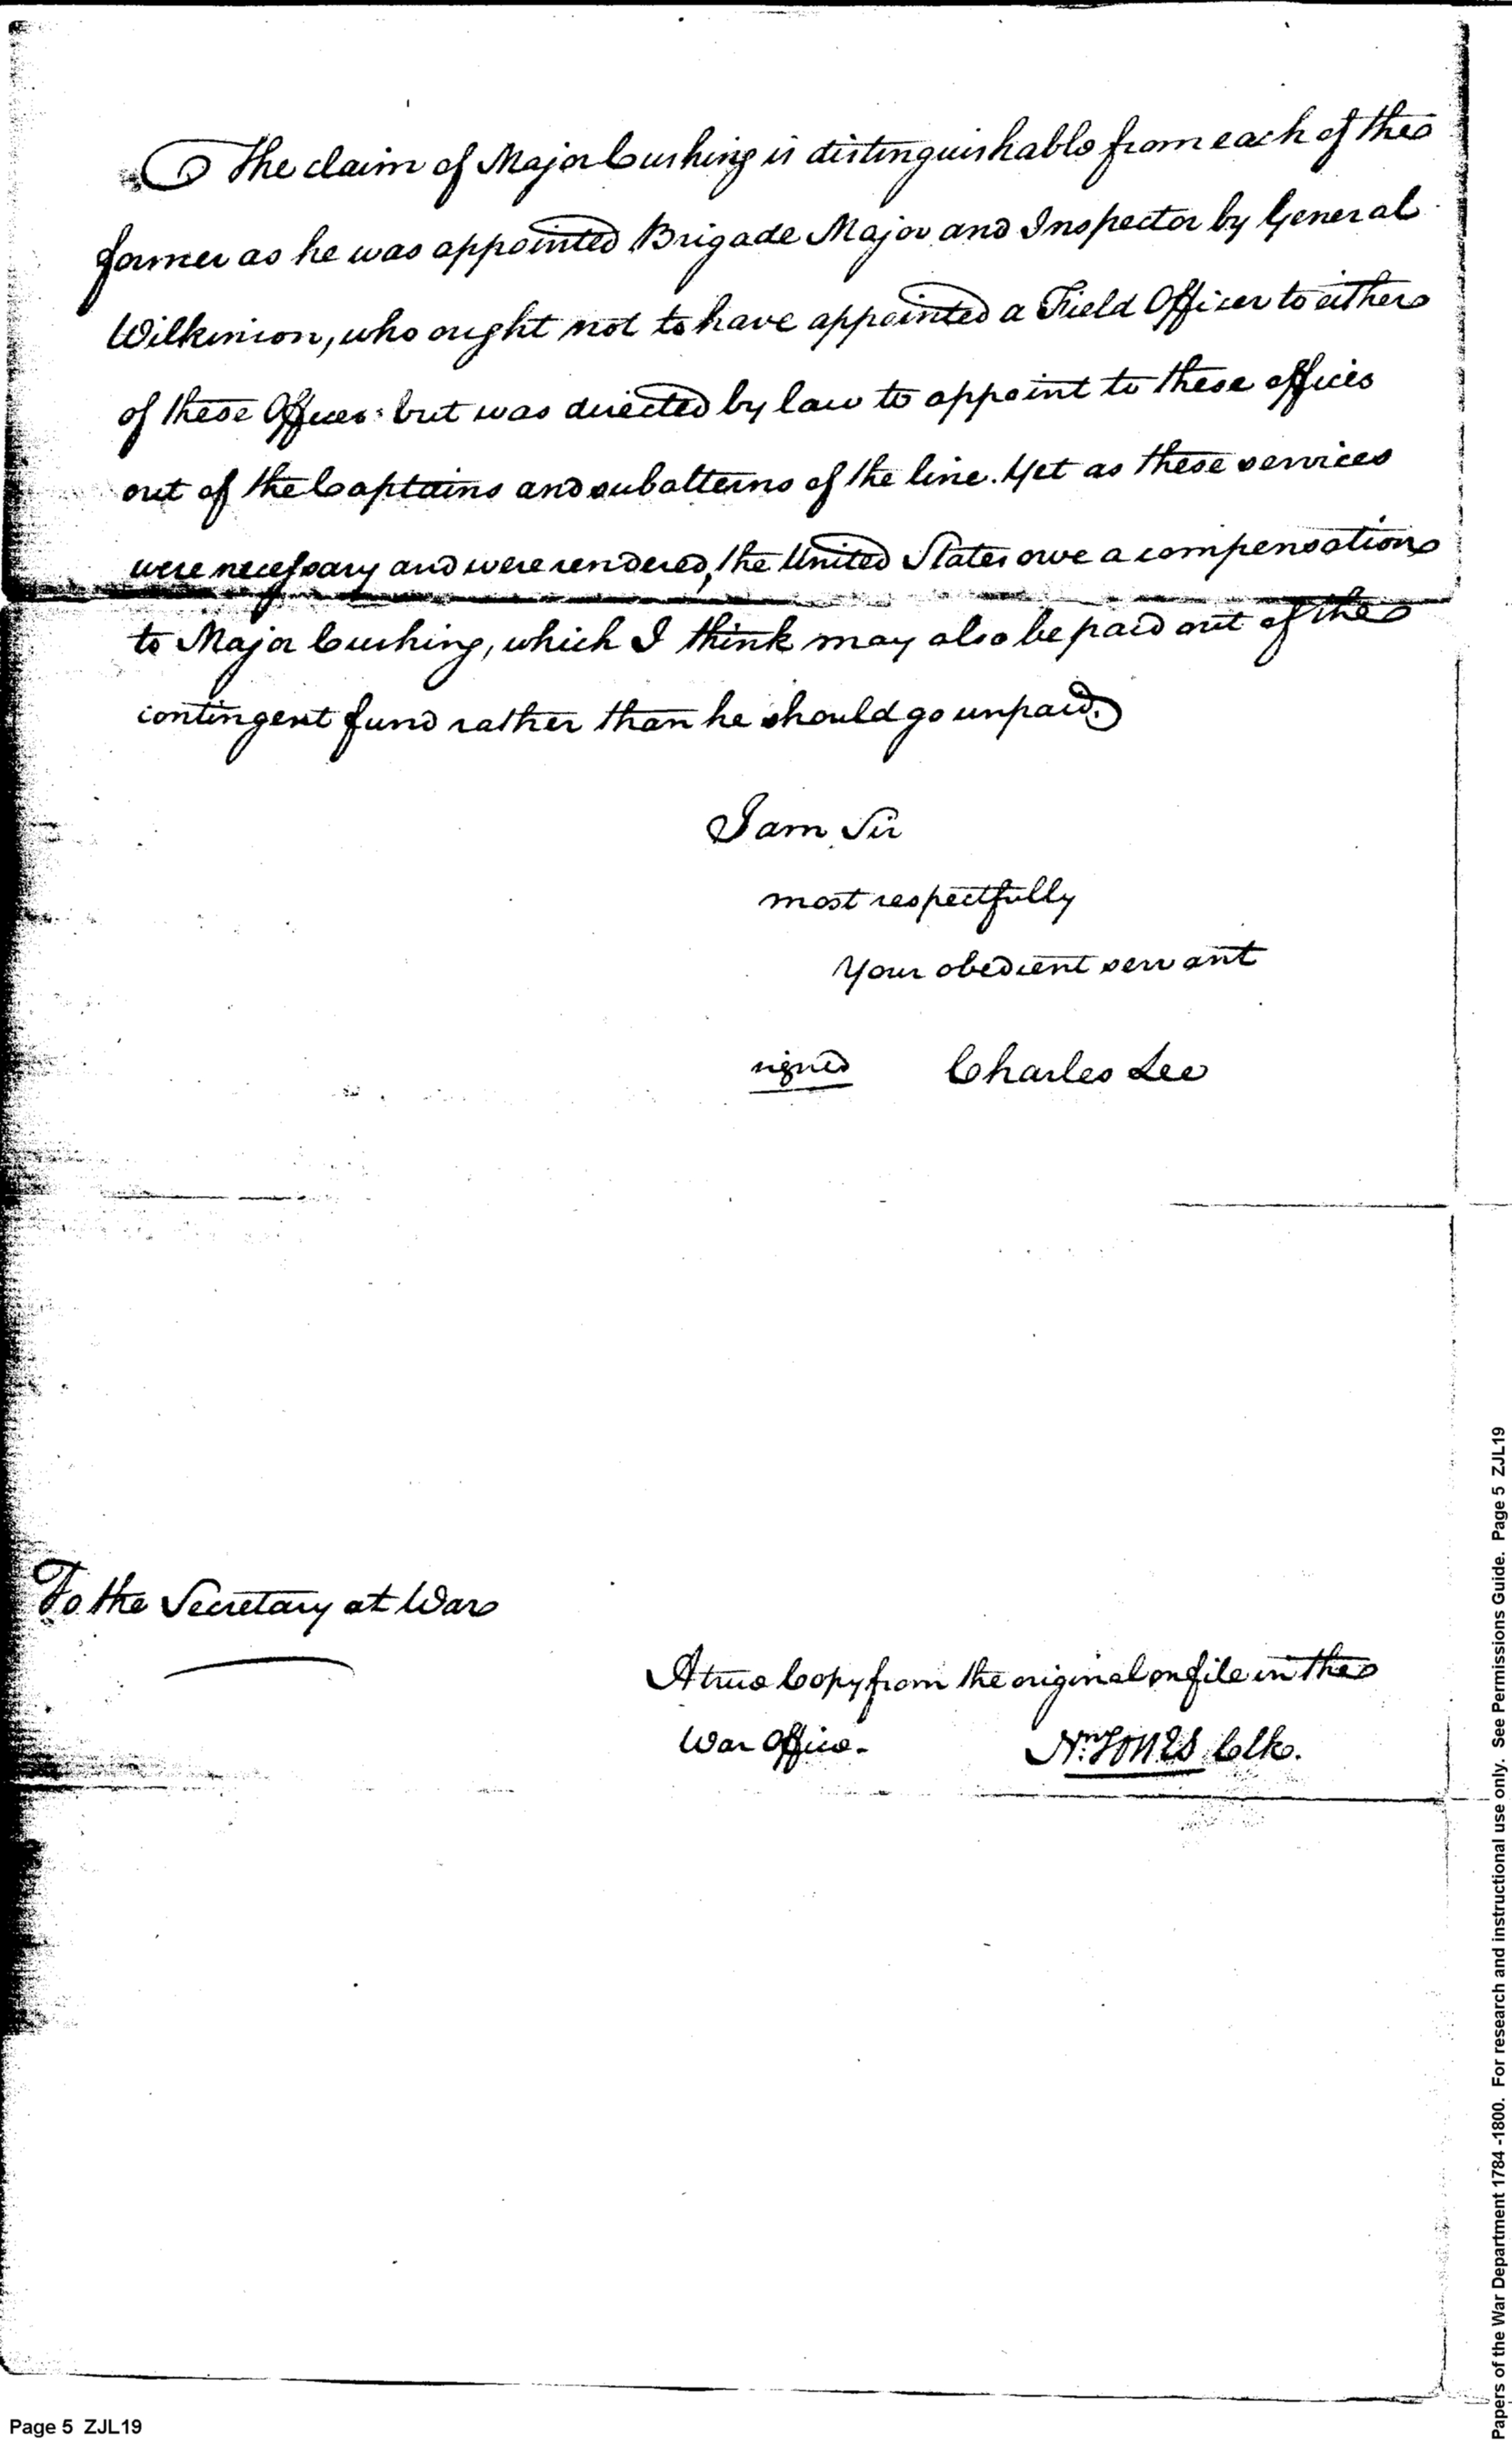 The claim of Major Cushing is distinguishable from each of the
former as he was appointed Brigade Major and Inspector by General
Wilkinson, who ought not to have appointed a Field Officer to either
of these Offices: but was directed by law to appoint to these offices
out of the Captains and subalterns of the line. Yet as these services
were necessary and were rendered, the United States owe a compensation
to Major Cushing, which I think may also be paid out of the
contingent fund rather than he should go unpaid.
I am Sir
most respectfully
Your obedient servant
signed Charles Lee
To the Secretary at War
A true Copy from the original on file in the
War Office. Nn. Jones Clk.
Page 5 ZJL19
Papers of the War Department 1784 -1800. For research and instructional use only. See Permissions Guide. Page 5 ZJL19